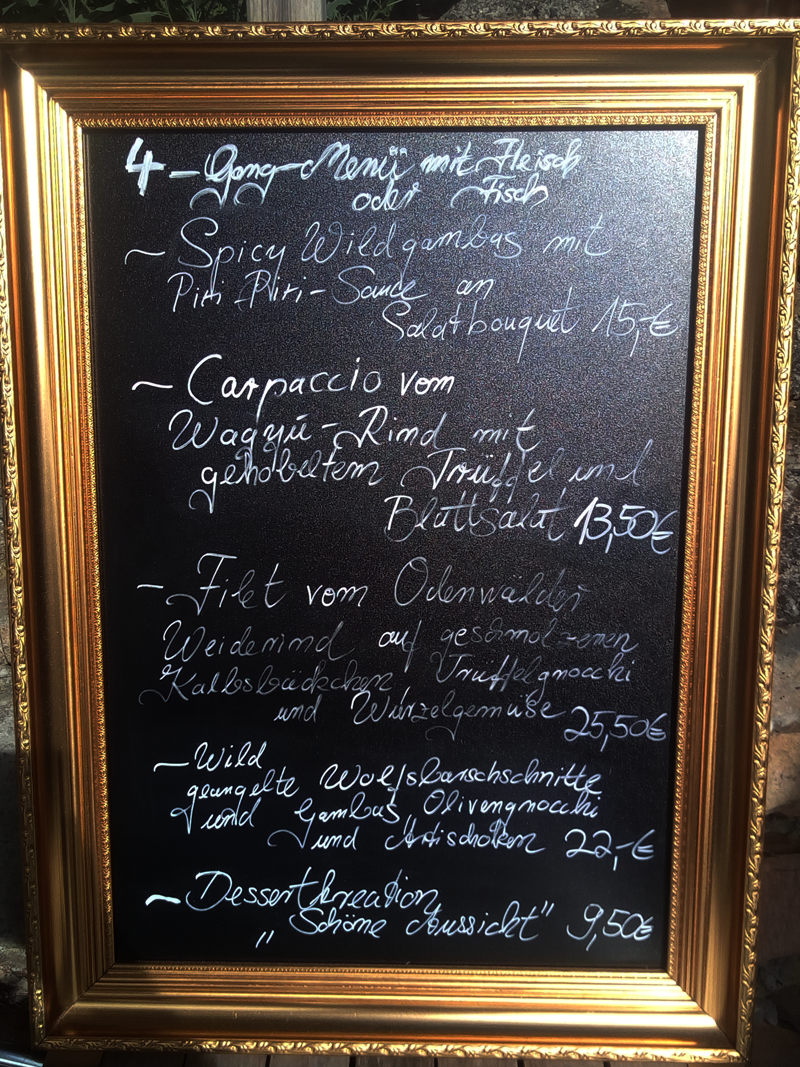 4-Gang-Menü mit Fleisch
oder Fisch
~ Spicy Wildgambas mit
Piri Piri-Sauce an
Salatbouquet 15,-€
~ Carpaccio vom
Wagyu-Rind mit
gehobeltem Trüffel und
Blattsalat 13,50€
- Filet vom Odenwälder
Weiderind auf geschmolzenen
Kalbsbäckchen Trüffelgnocchi
und Wurzelgemüse 25,50€
~ Wild
geangelte Wolfsbarschschnitte
und Gambas, Olivengnocchi
und Artischoken 22,-€
~ Dessertkreation
"Schöne Aussicht" 9,50€